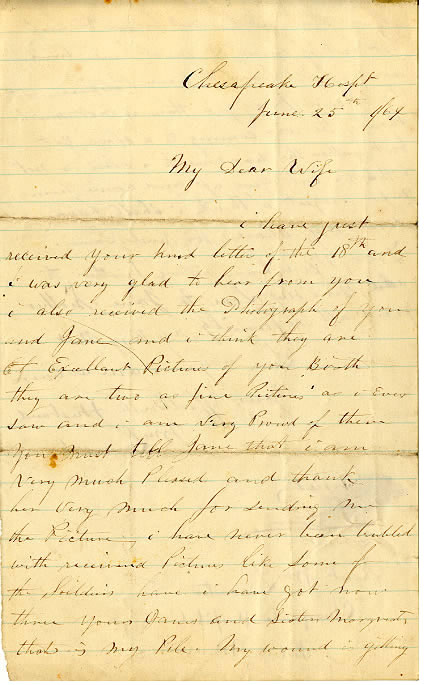 Chesapeake Hospt
June 25th /64
My Dear Wife
i have just
received your kind letter of the 18th and
i was very glad to hear from you
i also received the Photograph of you
and Jane and i think they are
Excellant Pictures of you Booth
they are two as fine Pictures as i Ever
saw and i am very Proud of them
You must tell Jane that i am
very much Plesed and thank
her very much for sending me
the Picture i have never been trubled
with received Pictures like some of
the Soildirs have i have got now
three yours Janes and Sister
that is my Pile. My wound is gitting